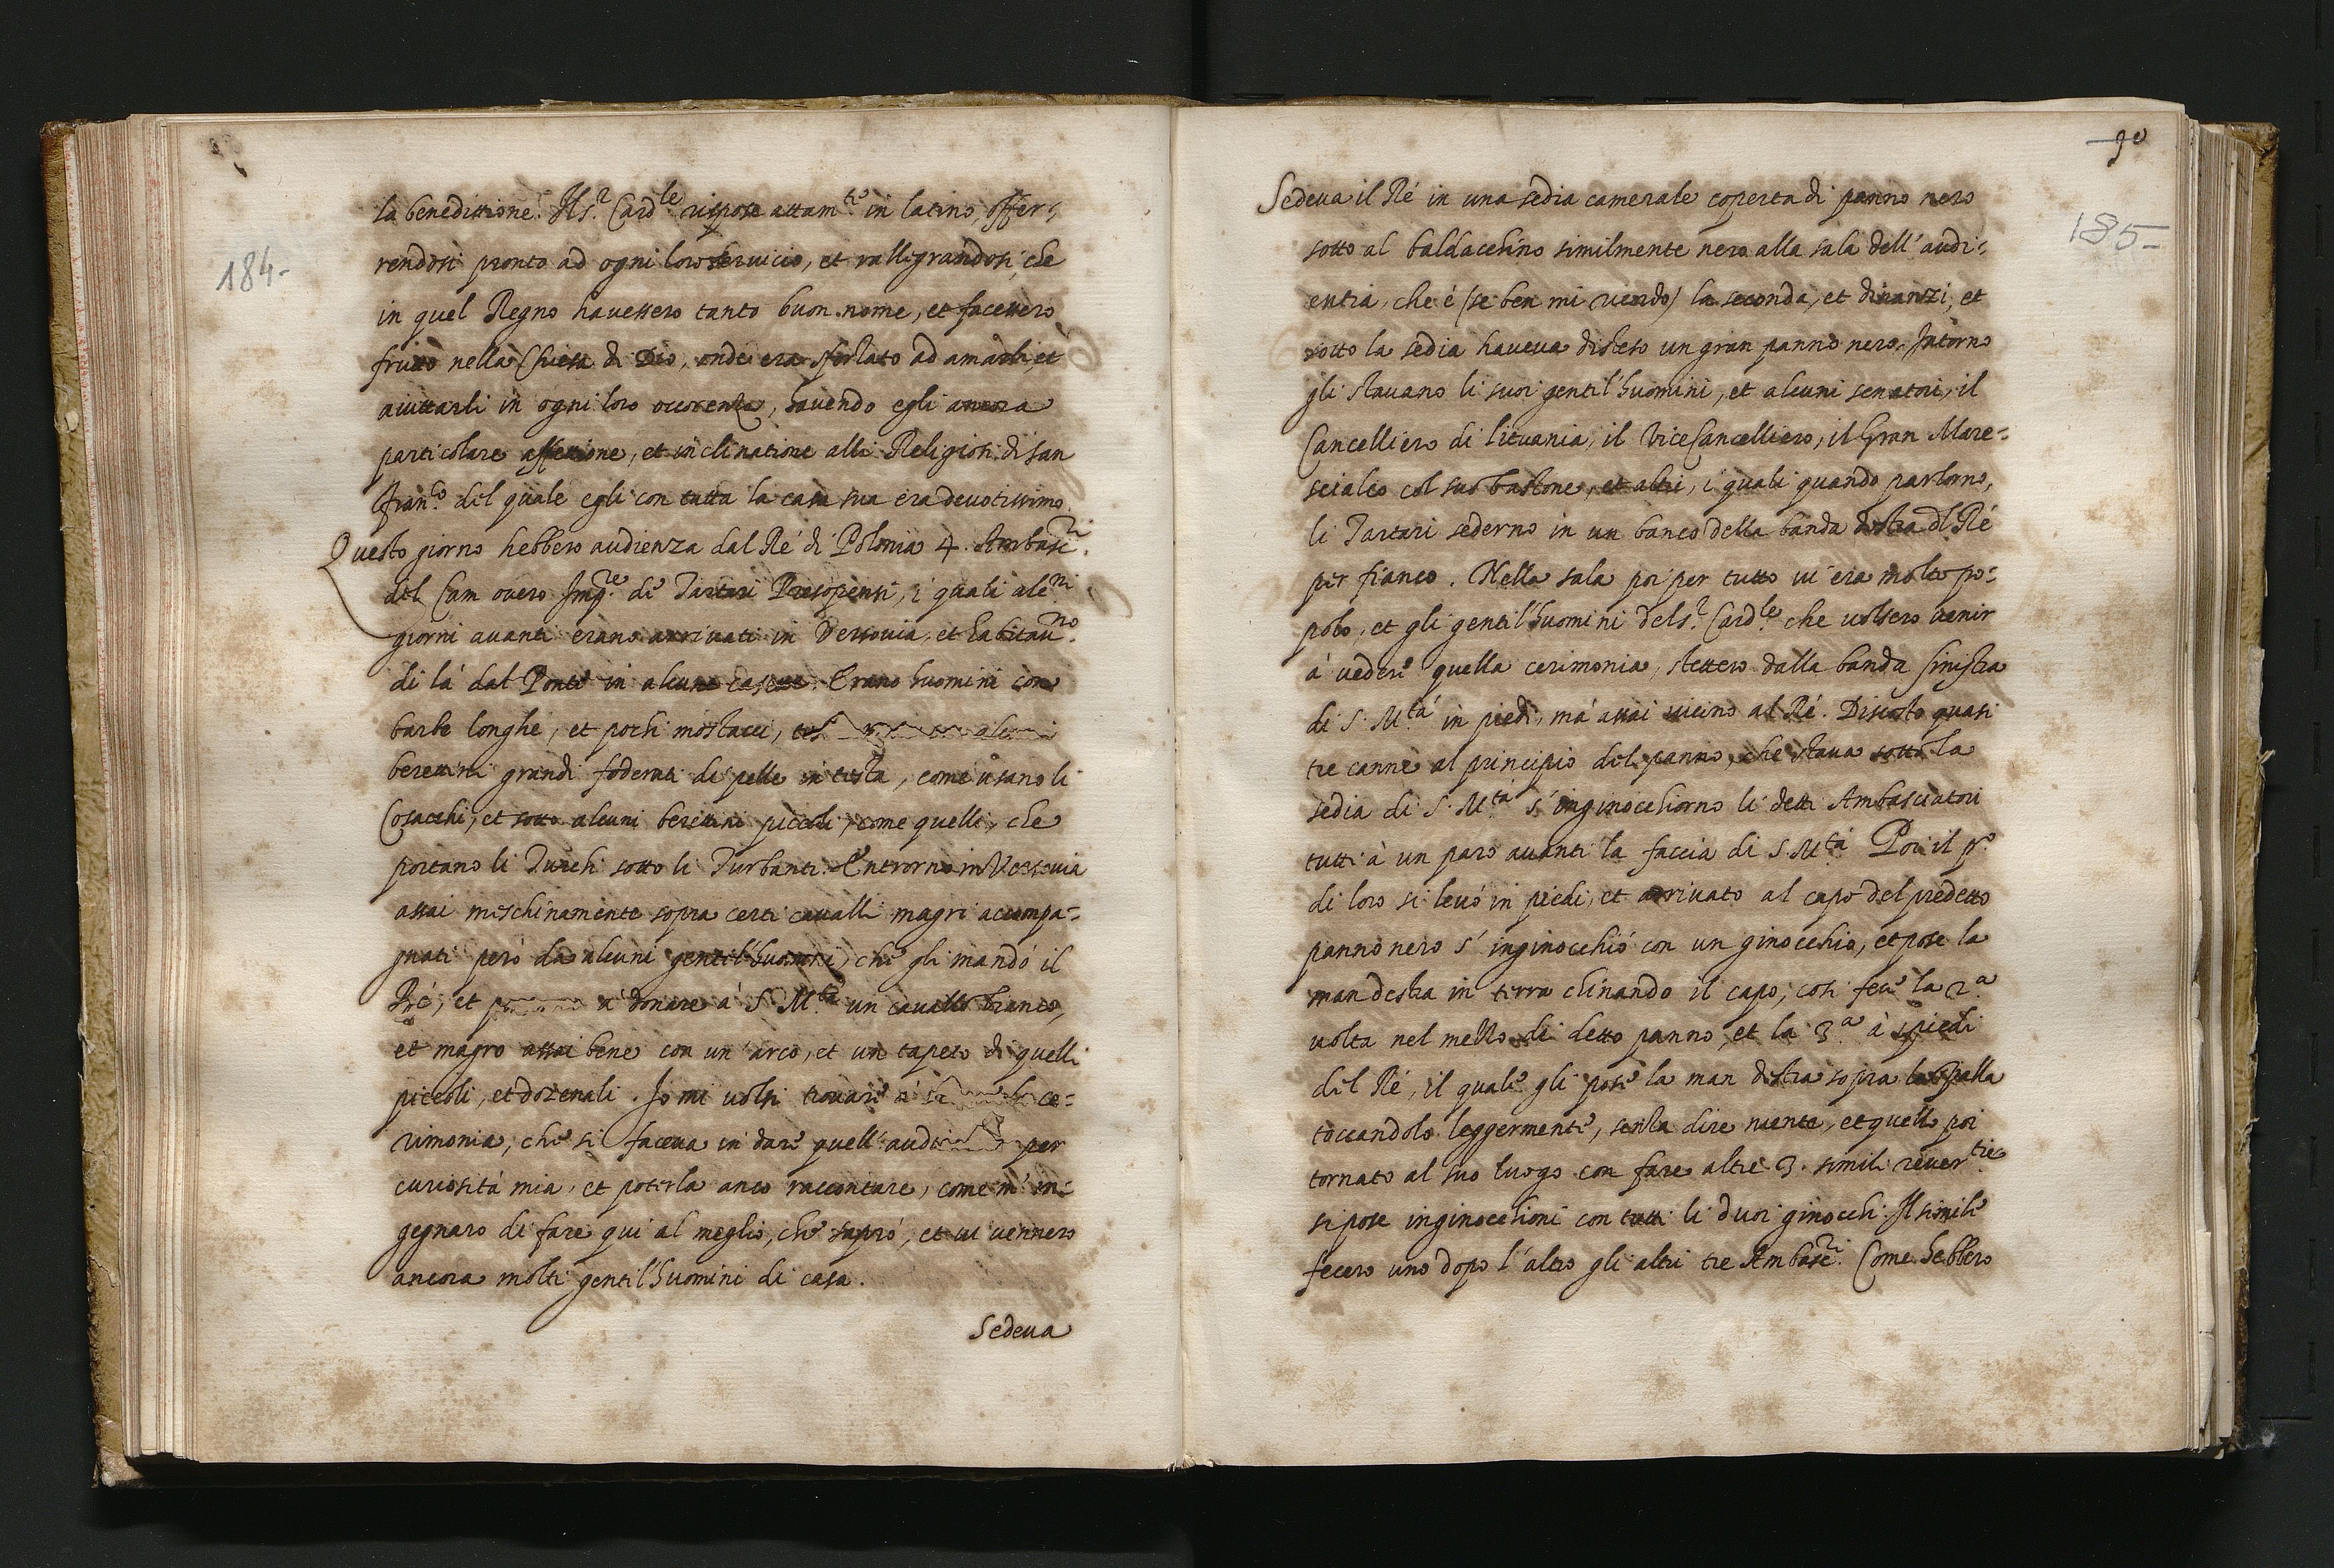 184-
la benedittione. Il s.r Card.le rispose attam.te in latino, offer-
rendosi pronto ad ogni loro servicio, et rallegrandosi, che
in quel Regno havessero tanto buon nome, et facessero
frutto nella Chiesa di Dio, onde era sforzato ad amarli, et
aiuttarli in ogni loro occorenza, havendo egli ancora
particolare affettione, et inclinatione alli Religiosi di san
Fran.co del quale egli con tutta la casa sua era devotissimo.
Questo giorno hebbero audienza dal Ré di Polonia 4. Ambasc.ri
del Cam overo Imp.re de Tartari Precopensi, i quali alc.ni
giorni avanti erano arrivati in Versovia, et habitav.no
di lá dal Ponte in alcune casette. Erano huomini con
barbe longhe, et pochi mostacci,
berettini grandi foderati di pelle in testa, come usano li
Cosacchi, et sotto alcuni berettini piccoli, come quelli, che
portano li Turchi sotto li Turbanti. Entrorno in Versovia
assai meschinamente sopra certi cavalli magri accompa-
gnati peró da alcuni gentil'huomini, che gli mandó il
Ré, et à donare à S. M.tá un cavallo bianco,
et magro assai bene con un arco, et un tapeto di quelli
piccoli, et dozenali. Io mi volsi trovare à ce-
rimonia, che si faceva in dare quell' per
curiositá mia, et poterla anco raccontare, come m' in-
gegnaro di fare qui al meglio, che sapró, et vi vennero
ancora molti gentil'huomini di casa.
Sedeva
90
185-
Sedeva il Ré in una sedia camerale coperta di panno nero
sotto al baldacchino similmente nero alla sala dell' audi-
entia, che é (se ben mi ricordo) la seconda, et dinanzi, et
sotto la sedia haveva disteso un gran panno nero. Intorno
gli stavano li suoi gentil'huomini, et alcuni senatori, il
Cancelliero di Lituania, il ViceCancelliero, il Gran Mare-
scialco col suo bastone, et altri, i quali quando parlorno,
li Tartari sederno in un banco della banda destra del Ré
per fianco. Nella sala poi per tutto vi era molto po-
polo, et gli gentil'huomini del s.r Card.le che volsero venir
à vedere quella cerimonia, stettero dalla banda sinistra
di S. M.tá in piedi, má assai vicino al Ré. Discosto quasi
tre canne al principio del panno, che stava sotto la
sedia di S. M.tá s' inginocchiorno li detti Ambasciatori
tutti à un paro avanti la faccia di S. M.tá Poi il p.o
di loro si levó in piedi, et arrivato al capo del predetto
panno nero s' inginocchió con un ginocchio, et pose la
man destra in terra chinando il capo, cosi fece la 2.a
volta nel mezzo di detto panno, et la 3.a à i piedi
del Ré, il quale gli pose la man destra sopra la spalla
toccandolo leggermente, senza dire niente, et quello poi
tornato al suo luogo con fare altre 3. simili rever.tie
si pose inginocchioni con tutti li duoi ginocchi. Il simile
fecero uno dopo l'altro gli altri tre Ambasc.ri Come hebbero